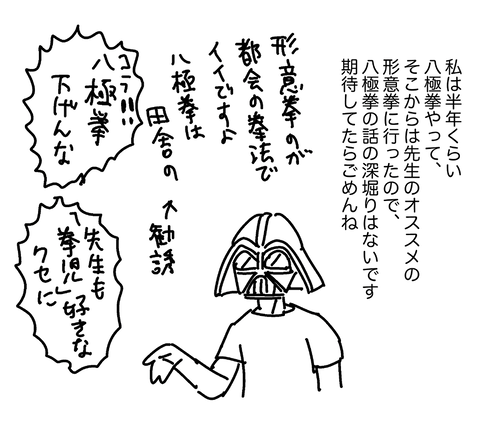 私は半年くらい
八極拳やって、
そこからは先生のオススメの
形意拳に行ったので、
八極拳の話の深堀りはないです
期待してたらごめんね
形意拳のが
都会の拳法で
イイですよ
八極拳は
田舎の
勧誘
コラ!!
八極拳
下げんな
先生も
「拳児」好きな
クセに